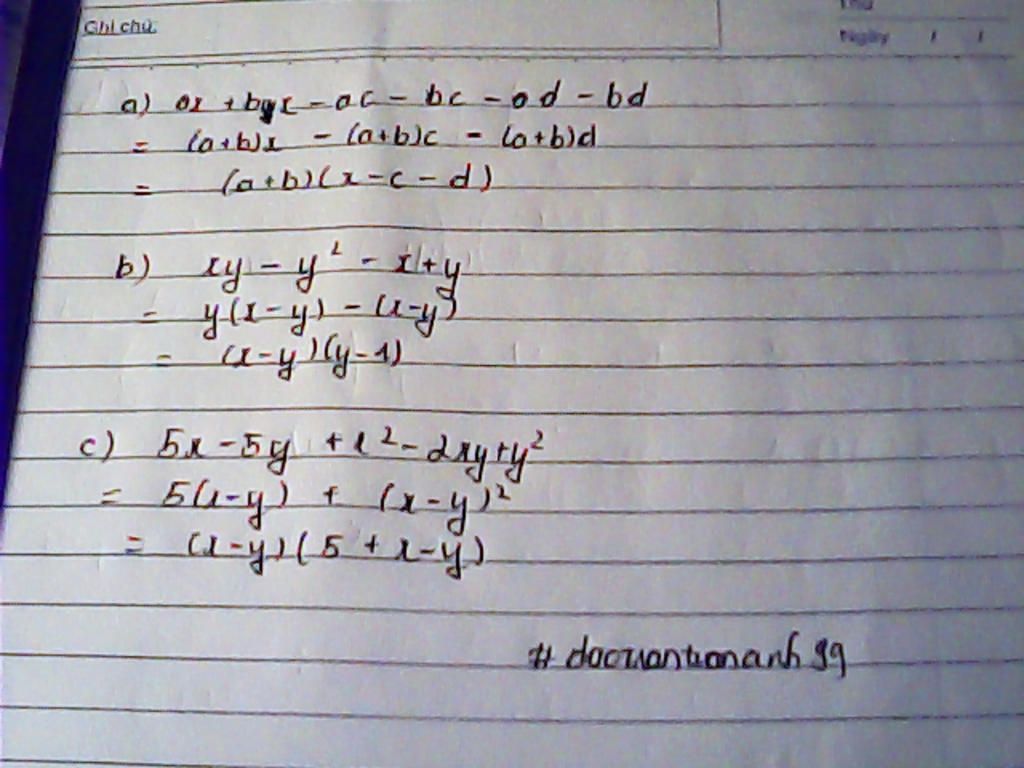 Ghi chú:
Thứ
Ngày / /
a) ax + bx - ac - bc - ad - bd
= (a+b)x - (a+b)c - (a+b)d
= (a+b)(x-c-d)
b) xy - y² - x + y
= y(x-y) - (x-y)
= (x-y)(y-1)
c) 5x - 5y + x² - 2xy + y²
= 5(x-y) + (x-y)²
= (x-y)(5+x-y)